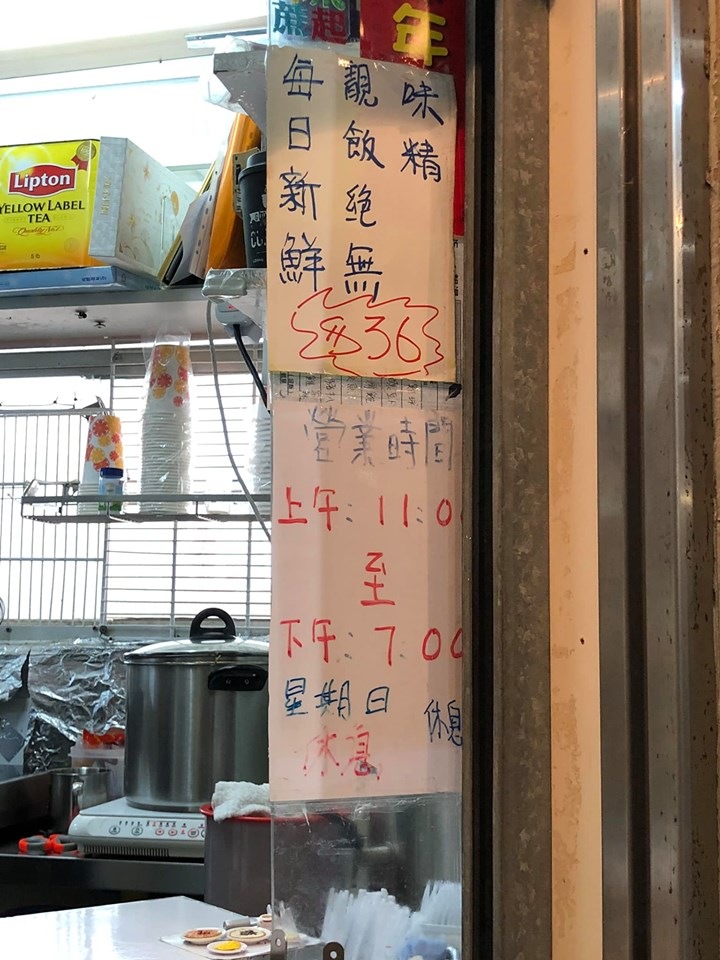 年
每日新鮮
靚飯絕無
味精
$36
營業時間
上午:11:00
至
下午:7:00
星期日 休息
休息
Lipton
YELLOW LABEL
TEA